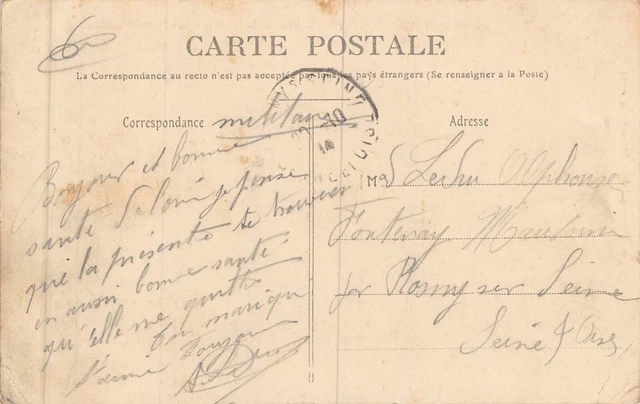 6
CARTE POSTALE
La Correspondance au recto n'est pas acceptée par tous les pays étrangers (Se renseigner à la Poste)
Correspondance militaire
Adresse
Bonjour et bonne
santé je pense
que la présente te trouvera
en aussi bonne santé
qu'elle me quitte
Ton mari qui
t'aime Toujours
Alphonse
Fontenay
Rosny sur Seine
Seine & Oise